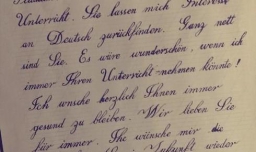 Unterricht. Sie lassen mich Interesse
an Deutsch zurückfinden. Ganz nett
sind Sie. Es wäre wunderschön, wenn ich
immer Ihren Unterricht nehmen könnte!
Ich wünsche herzlich Ihnen immer
gesund zu bleiben. Wir lieben Sie
für immer. Ihr wünsche mir die
Zukunft wieder